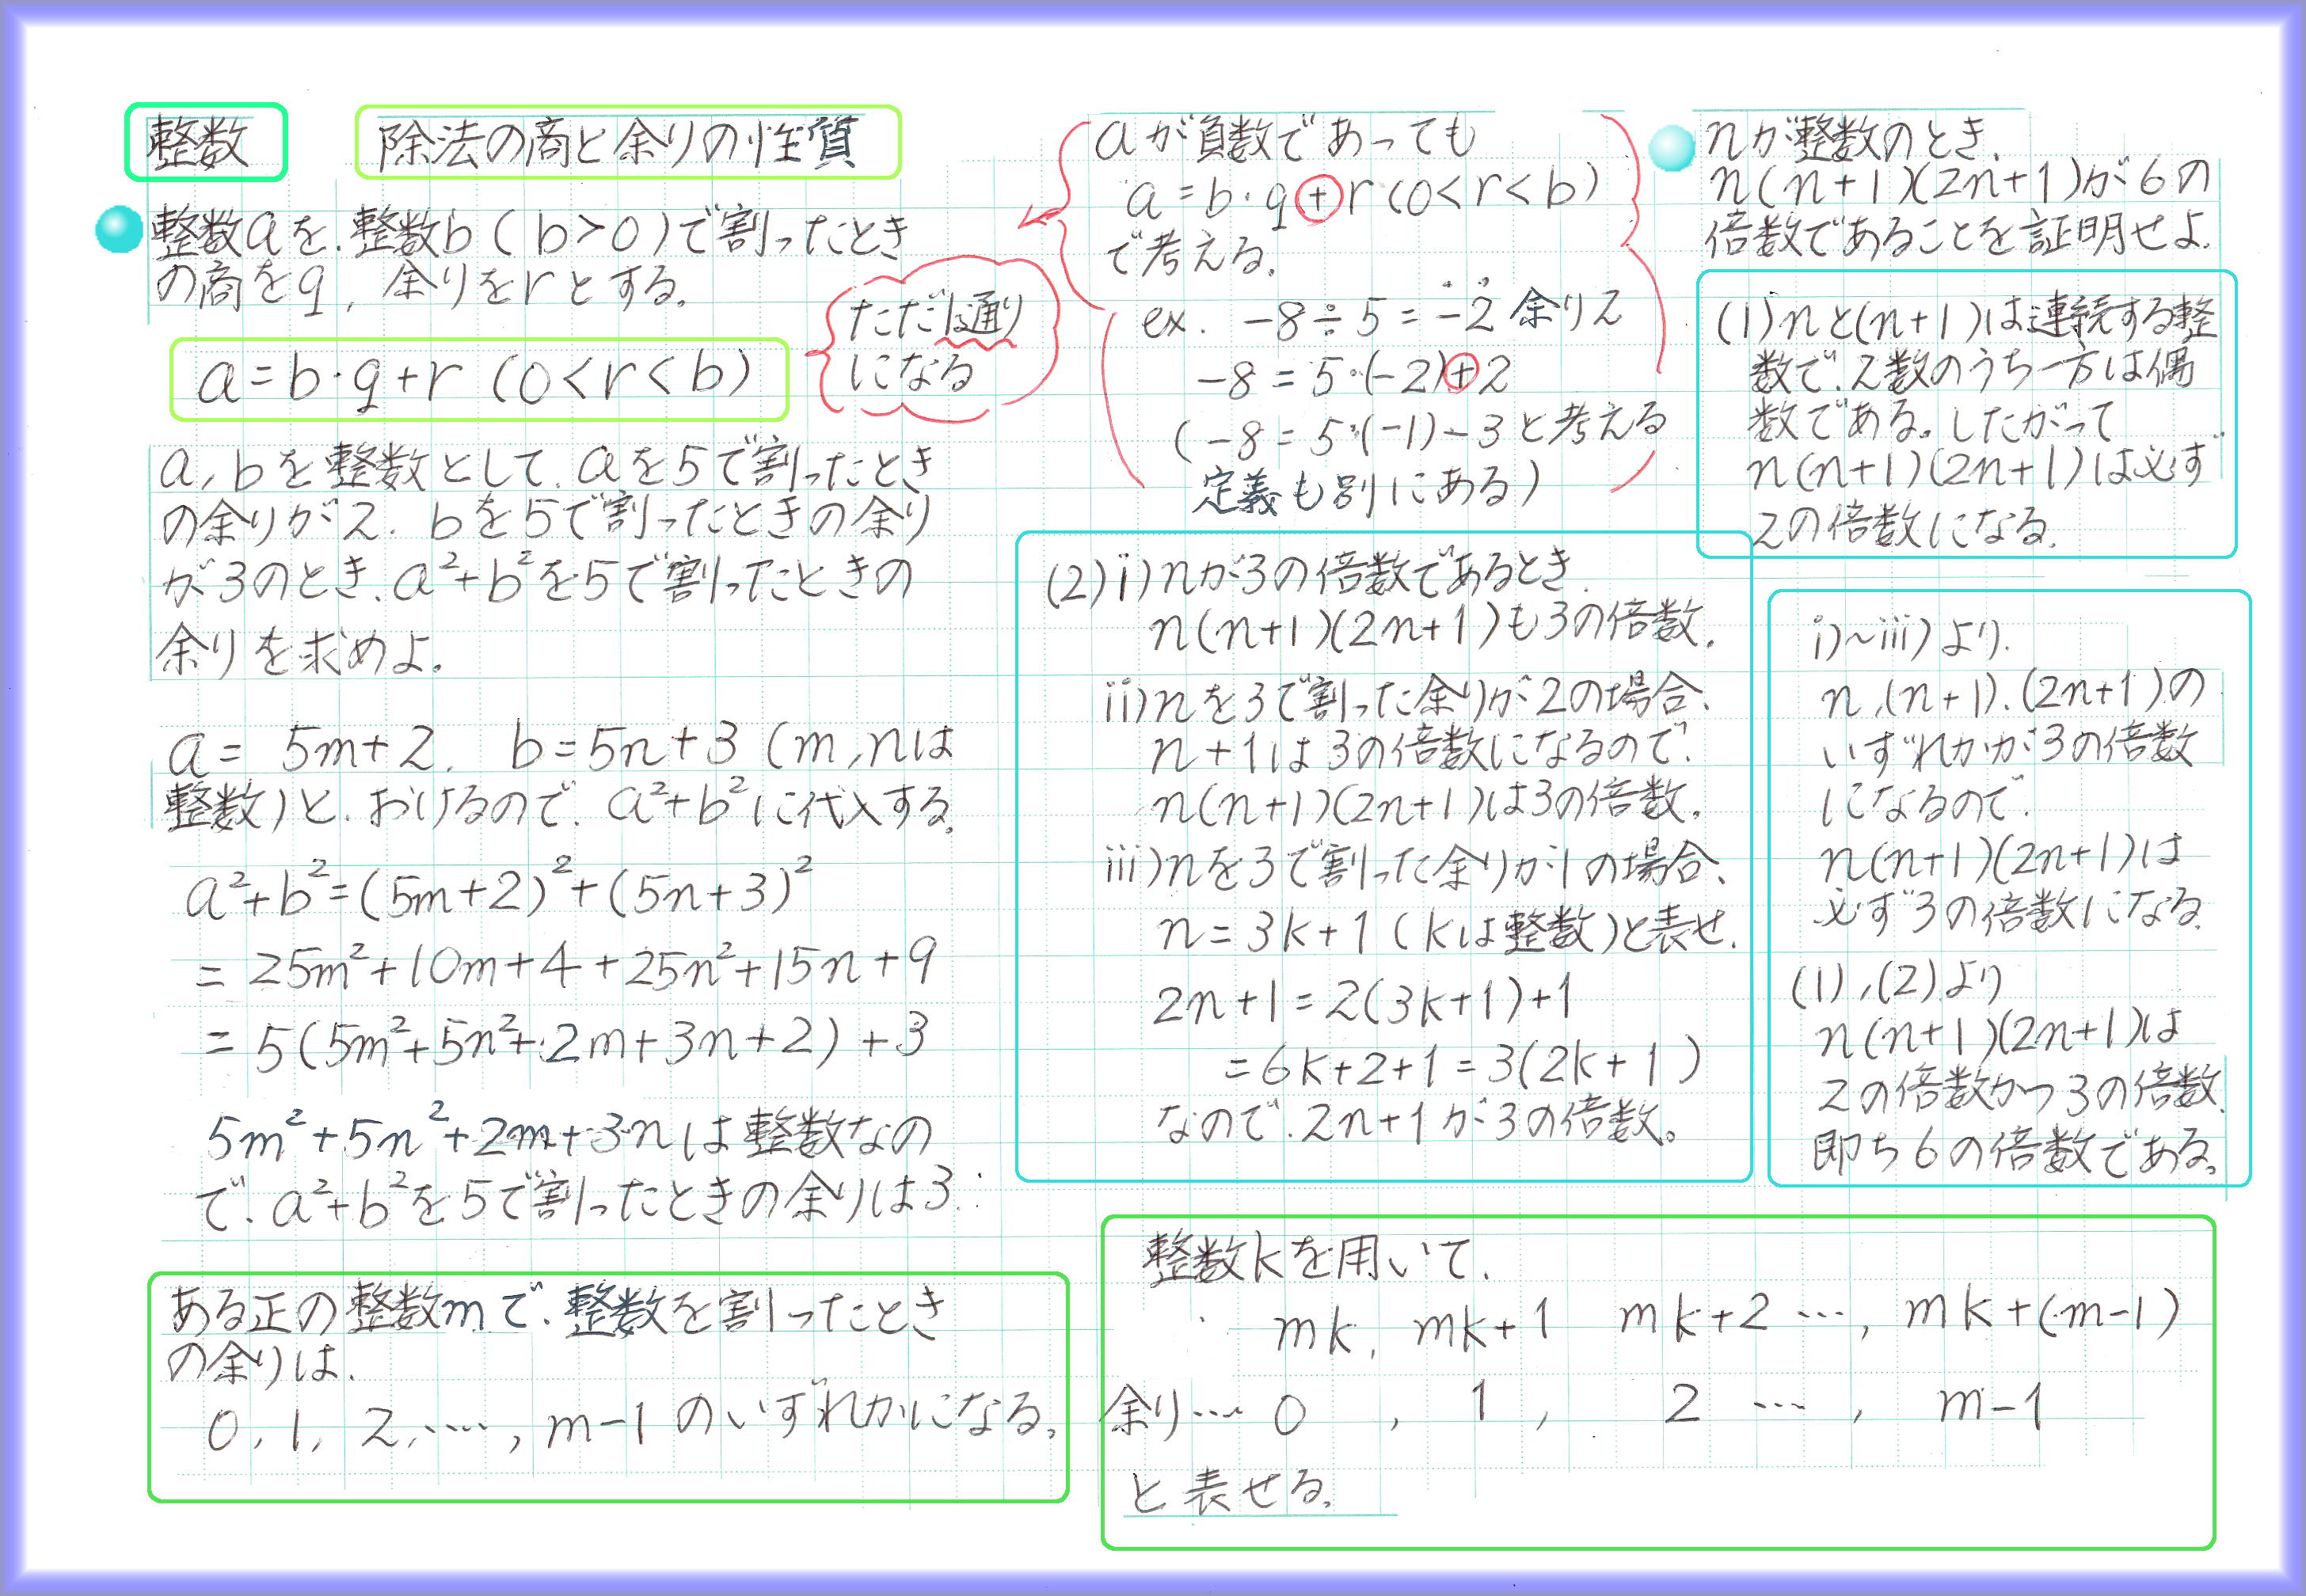 整数
除法の商と余りの性質
整数aを、整数b(b>0)で割ったとき
の商をq, 余りをrとする。
a=b・q+r (0<r<b)
ただ1通り
になる
a,bを整数として、aを5で割ったとき
の余りが2、bを5で割ったときの余り
が3のとき、a²+b²を5で割ったときの
余りを求めよ。
a= 5m+2, b=5n+3 (m,nは
整数)と、おけるので、a²+b²に代入する。
a²+b²=(5m+2)²+(5n+3)²
=25m²+10m+4+25n²+15n+9
=5(5m²+5n²+2m+3n+2)+3
5m²+5n²+2m+3nは整数なの
で、a²+b²を5で割ったときの余りは3.
ある正の整数mで、整数を割ったとき
の余りは、
0,1,2,……,m-1のいずれかになる。
aが負数であっても
a=b・q+r(0<r<b)
で考える。
ex. -8÷5=-2 余り2
-8=5・(-2)+2
(-8=5・(-1)-3と考える
定義も別にある)
nが整数のとき、
n(n+1)(2n+1)が6の
倍数であることを証明せよ。
(1)nと(n+1)は連続する整
数で、2数のうち一方は偶
数である。したがって
n(n+1)(2n+1)は必ず
2の倍数になる。
(2)i)nが3の倍数であるとき、
n(n+1)(2n+1)も3の倍数。
ii)nを3で割った余りが2の場合、
n+1は3の倍数になるので、
n(n+1)(2n+1)は3の倍数。
iii)nを3で割った余りが1の場合、
n=3k+1(kは整数)と表せ、
2n+1=2(3k+1)+1
=6k+2+1=3(2k+1)
なので、2n+1が3の倍数。
i)~iii)より、
n,(n+1),(2n+1)の
いずれかが3の倍数
になるので、
n(n+1)(2n+1)は
必ず3の倍数になる。
(1),(2)より
n(n+1)(2n+1)は
2の倍数かつ3の倍数、
即ち6の倍数である。
整数kを用いて、
mk, mk+1 mk+2 …, mk+(m-1)
余り… 0 , 1 , 2 …, m-1
と表せる。